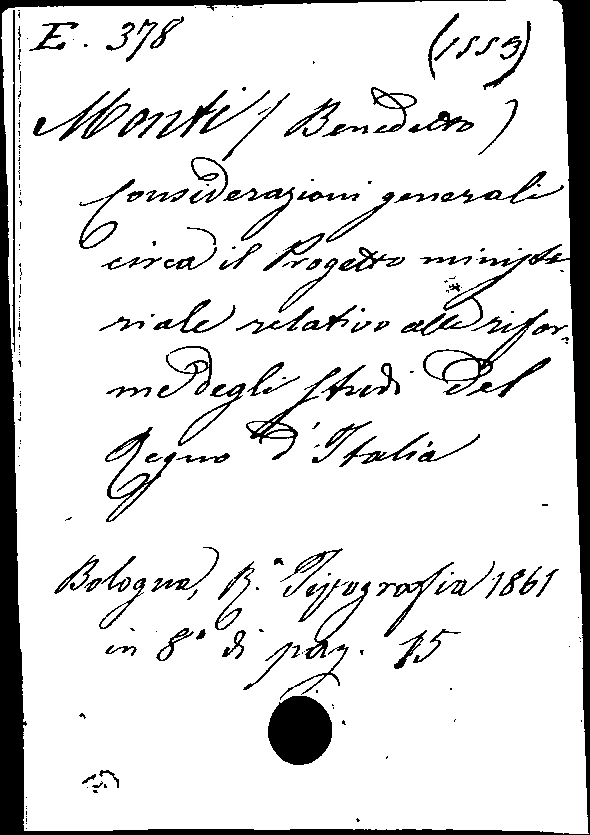 E. 378 (1553)
Monti (Benedetto)
Considerazioni generali
circa il Progetto ministe-
riale relativo alle rifor-
me degli studi del
Regno d'Italia
Bologna, R.ª Tipografia 1861
in 8° di pag. 15